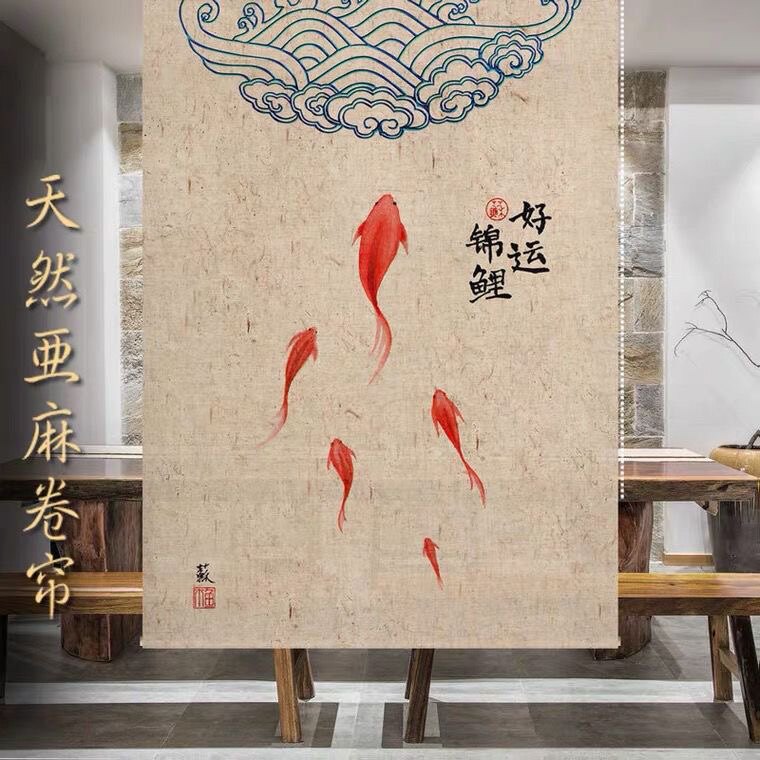 天然亜麻卷帘
好运
锦鲤